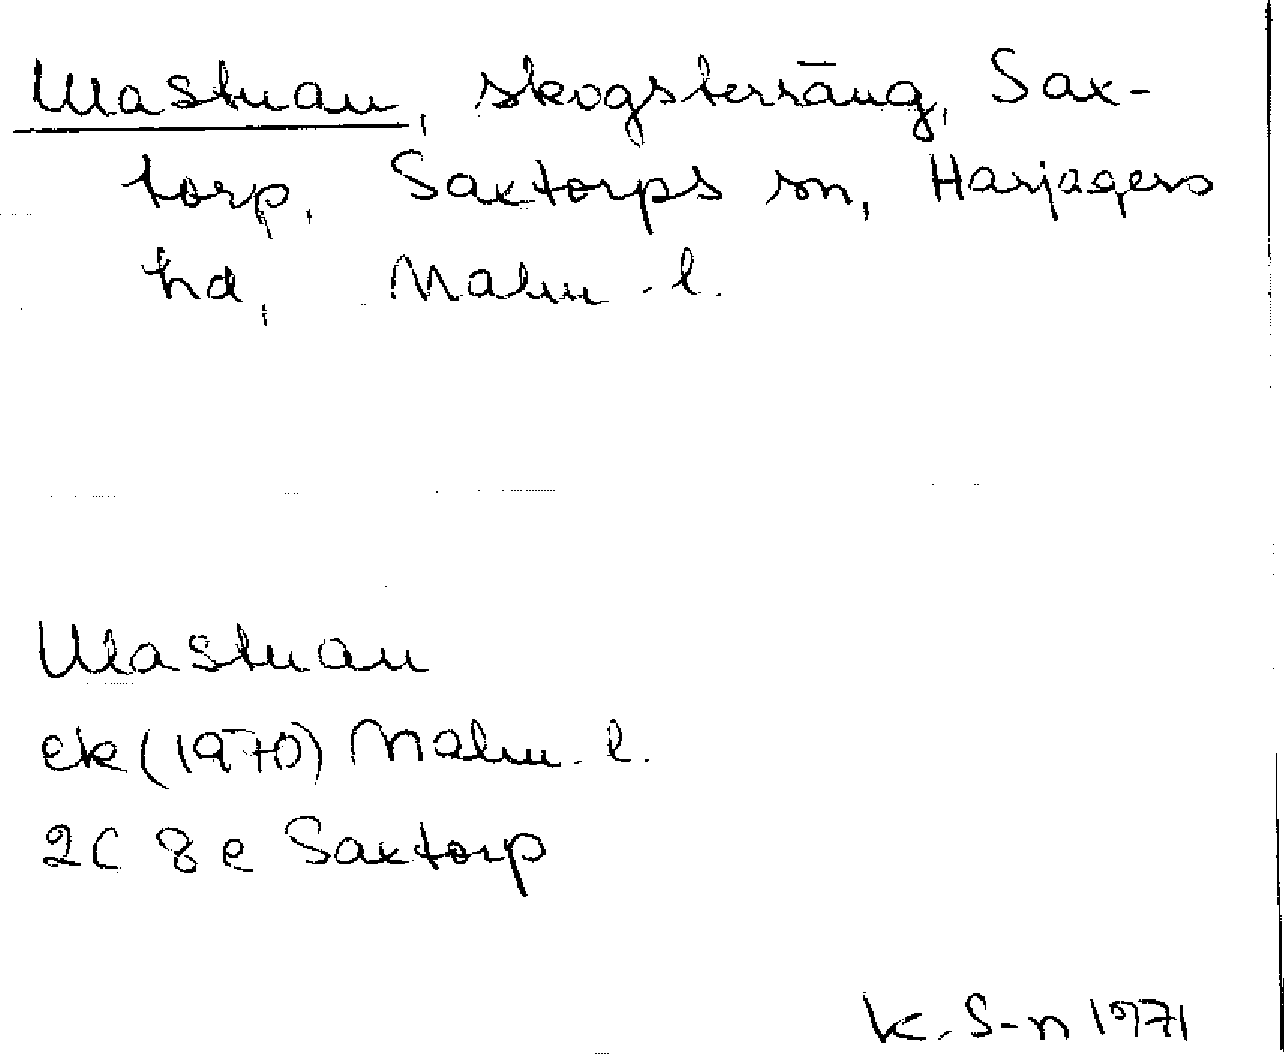 Ulastuan, skogsterräng, Sax-
torp, Saxtorps sn, Harjagers
hd, Malm. l.
Ulastuan
ek (1970) Malm. l.
2C 8e Saxtorp
K. S-n 1971